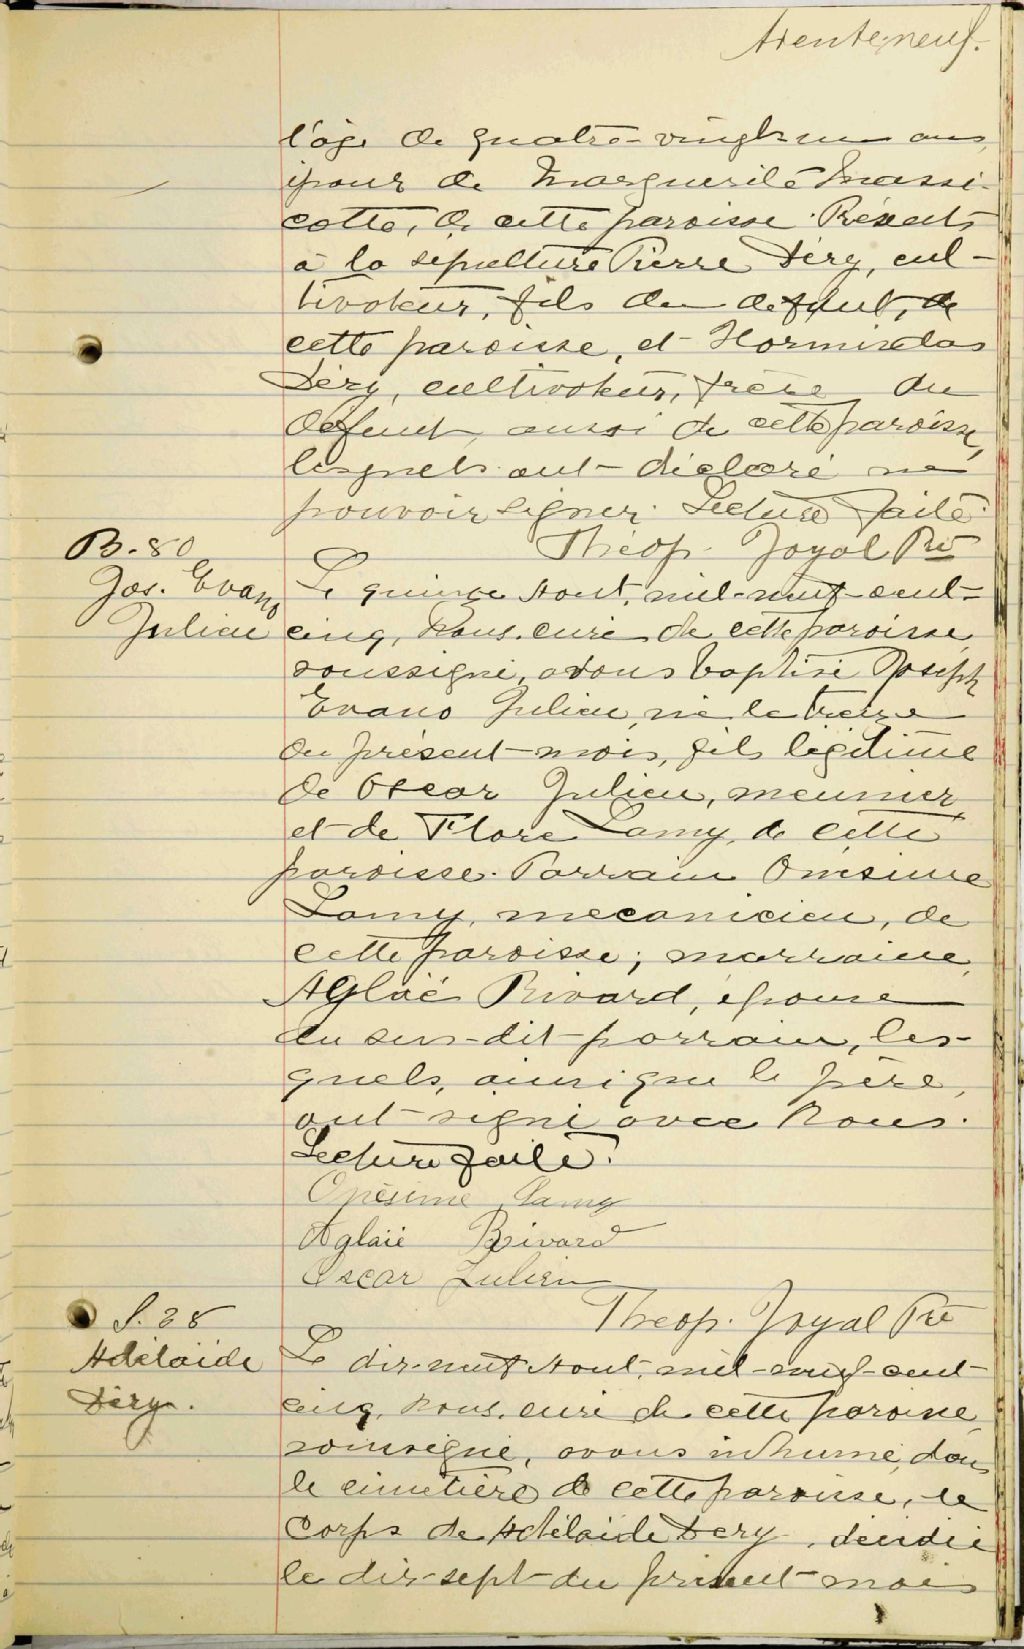 trenteneuf.
l'âge de quatre-vingt-un ans,
époux de Marguerite Massi-
cotte, de cette paroisse. Présents
à la sépulture Pierre Déry, cul-
tivateur, fils du defunt, de
cette paroisse, et Hormisdas
Déry, cultivateur, frère du
defunt, aussi de cette paroisse,
lesquels ont déclaré ne
pouvoir signer. Lecture faite.
Théop. Joyal Ptre
B. 80
Jos. Evano
Julien
Le quinze Aout, mil-neuf-cent-
cinq, Nous, curé de cette paroisse
soussigné, avons baptisé Joseph
Evano Julien, né le treize
du présent mois, fils légitime
de Oscar Julien, meunier,
et de Flore Lamy, de cette
paroisse. Parrain Onésime
Lamy, mecanicien, de
cette paroisse; marraine,
Aglaé Rivard, épouse
du sus-dit parrain, les-
quels, ainsi que le père,
ont signé avec Nous.
Lecture faite.
Onésime Lamy
Aglaié Rivard
Oscar Julien
Théop. Joyal Ptre
S. 38
Adélaïde
Déry.
Le dix-neuf Aout, mil-neuf-cent-
cinq, Nous, curé de cette paroisse
soussigné, avons inhumé, dans
le cimetière de cette paroisse, le
corps de Adélaïde Dery, décédée
le dix-sept du présent mois